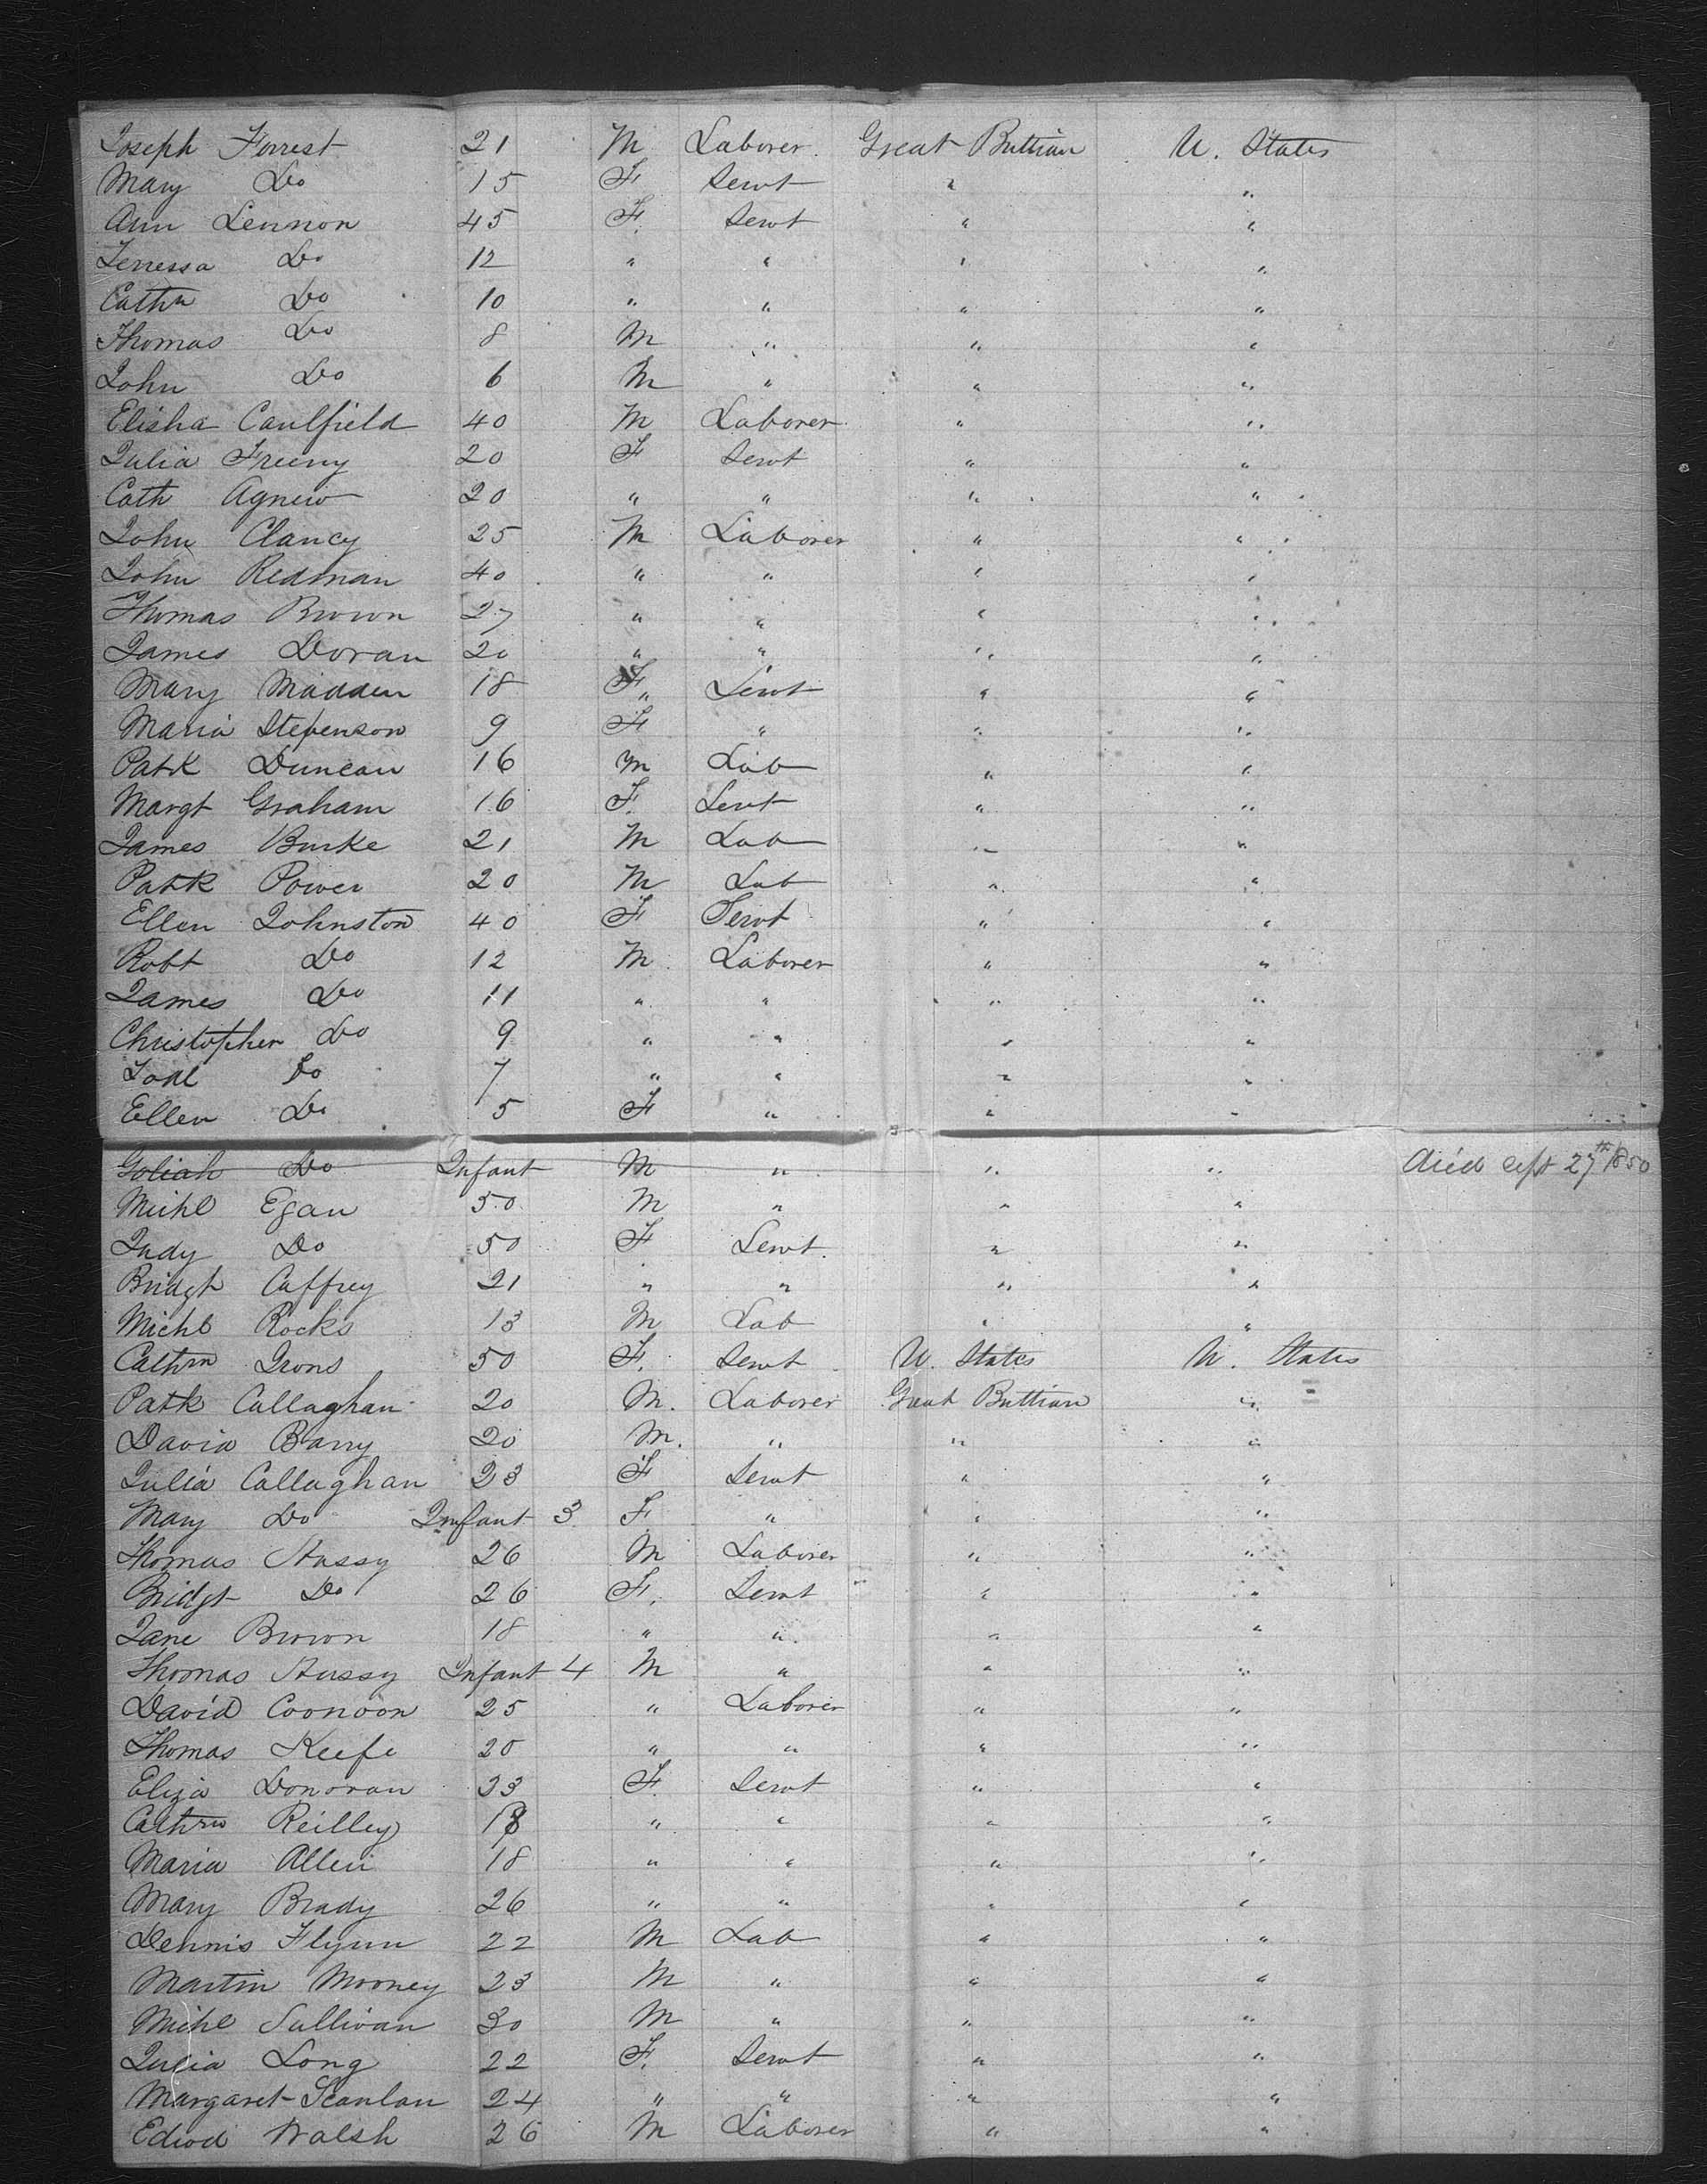 Joseph Forrest 21 M Laborer Great Buttian U. States
Mary Do 15 F Servt " "
Ann Lennon 45 F. Servt " "
Terressa Do 12 " " " "
Cathn Do 10 " " " "
Thomas Do 8 M " " "
John Do 6 M " " "
Elisha Caulfield 40 M Laborer " "
Julia Freeny 20 F Servt " "
Cath Agnew 20 " " " "
John Clancy 25 M Laborer " "
John Redman 40 " " " "
Thomas Brown 27 " " " "
James Doran 20 " " " "
Mary Madden 18 F " Servt " "
Maria Stepenson 9 F " " "
Patk Duncan 16 M Lab " "
Margt Graham 16 F. Servt " "
James Burke 21 M Lab " "
Patk Power 20 M Lab " "
Ellen Johnston 40 F Servt " "
Robt Do 12 M Laborer " "
James Do 11 " " " "
Christopher Do 9 " " " "
Do 7 " " " "
Ellen Do 5 F " " "
Goliah Do Infant M " " " died Sept 27th 1850
Michl Egan 50 M " " "
Judy Do 50 F Servt. " "
Bridgt Caffrey 21 " " " "
Michl Rocks 13 M Lab " "
Cathrn Irons 50 F. Servt U. States U. States
Patk Callaghan 20 M. Laborer Great Buttian "
David Barry 20 M. " " "
Julia Callaghan 23 F Servt " "
Mary Do Infant 3 F. " " "
Thomas 26 M Laborer " "
Bridgt Do 26 F. Servt " "
Jane Brown 18 " " " "
Thomas Infant 4 M " " "
David Coonoon 25 " Laborer " "
Thomas Keefe 20 " " " "
Eliza Donovan 23 F. Servt " "
Cathrn Reilley 18 " " " "
Maria Allen 18 " " " "
Mary Brady 26 " " " "
Dennis Flynn 22 M Lab " "
Martin Mooney 23 M " " "
Michl Sullivan 30 M " " "
Julia Long 22 F. Servt " "
Margaret Scanlan 24 " " " "
Edwd Walsh 26 M Laborer " "